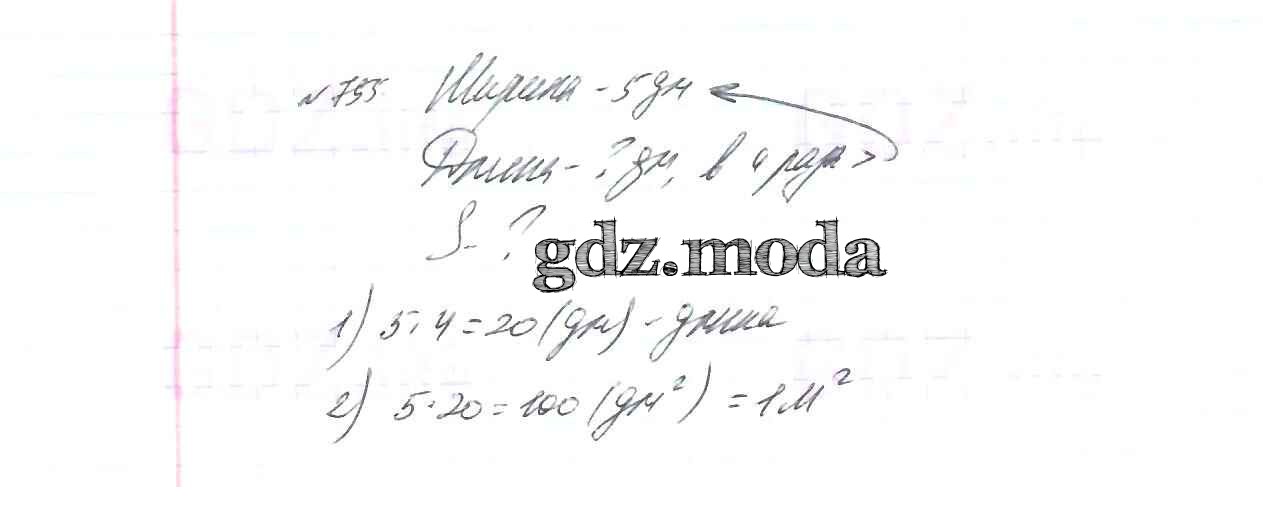 № 755 Ширина - 5 дм
Длина - ? дм, в 4 раза >
S - ?
gdz.moda
1) 5 · 4 = 20 (дм) - длина
2) 5 · 20 = 100 (дм²) = 1 м²